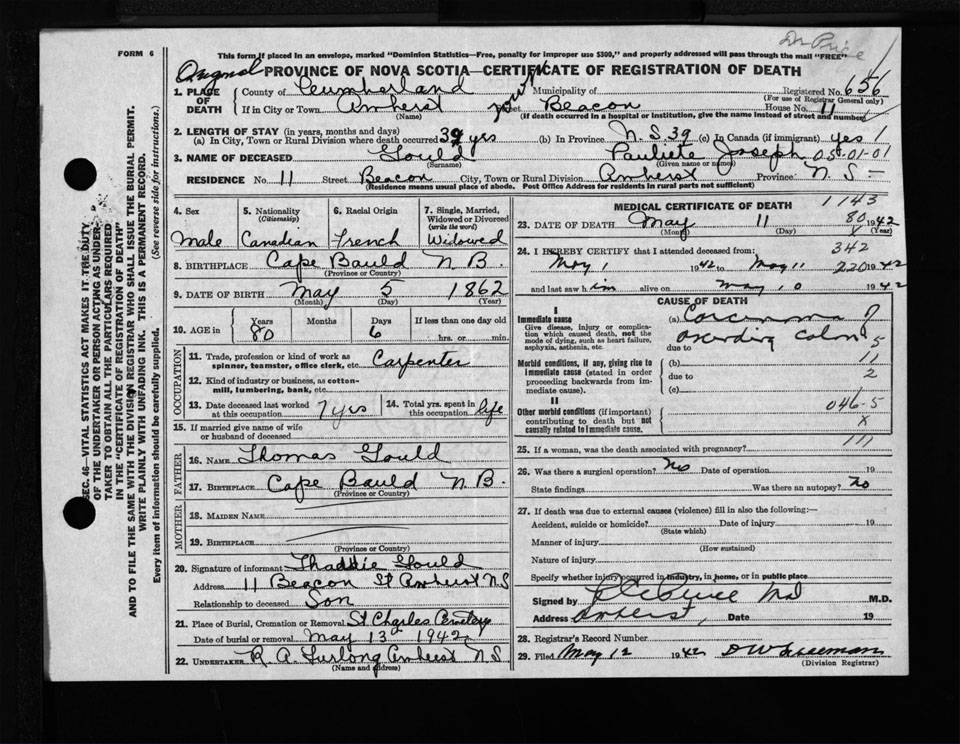 Dr Price
FORM 6
This form if placed in an envelope, marked "Dominion Statistics—Free, penalty for improper use $300," and properly addressed will pass through the mail "FREE"
Original PROVINCE OF NOVA SCOTIA—CERTIFICATE OF REGISTRATION OF DEATH
1. PLACE OF DEATH County of Cumberland Municipality of Registered No. 656
(For use of Registrar General only)
If in City or Town Amherst Street Beacon House No. 11
(Name) (If death occurred in a hospital or institution, give the name instead of street and number)
2. LENGTH OF STAY (in years, months and days)
(a) In City, Town or Rural Division where death occurred 39 yrs (b) In Province N.S. 39 (c) In Canada (if immigrant) yes 1
3. NAME OF DECEASED Gould Joseph 05-01-01
(Surname) (Given name or names)
RESIDENCE No. 11 Street Beacon City, Town or Rural Division Amherst Province N.S.—
(Residence means usual place of abode. Post Office Address for residents in rural parts not sufficient)
4. Sex 5. Nationality (Citizenship) 6. Racial Origin 7. Single, Married, Widowed or Divorced (write the word)
Male Canadian French Widowed
8. BIRTHPLACE Cape Bauld N.B.
(Province or Country)
9. DATE OF BIRTH May 5 1862
(Month) (Day) (Year)
10. AGE in Years Months Days If less than one day old
80 6 hrs. or min.
OCCUPATION
11. Trade, profession or kind of work as spinner, teamster, office clerk, etc. Carpenter
12. Kind of industry or business, as cotton-mill, lumbering, bank, etc.
13. Date deceased last worked at this occupation 7 yrs 14. Total yrs. spent in this occupation life
15. If married give name of wife or husband of deceased
FATHER
16. NAME Thomas Gould
17. BIRTHPLACE Cape Bauld N.B.
(Province or Country)
MOTHER
18. MAIDEN NAME
19. BIRTHPLACE
(Province or Country)
20. Signature of informant Thaddie Gould
Address 11 Beacon St Amherst N.S
Relationship to deceased Son
21. Place of Burial, Cremation or Removal St Charles Cemetery
Date of burial or removal May 13th 1942
22. UNDERTAKER R. A. Furlong Amherst N.S
(Name and address)
MEDICAL CERTIFICATE OF DEATH 1143
23. DATE OF DEATH May 11 80 1942
(Month) (Day) X (Year)
24. I HEREBY CERTIFY that I attended deceased from: 342
May 1 1942 to May 11 220 1942
and last saw him alive on May 10 1942
CAUSE OF DEATH
I
Immediate cause (a) Carcinoma ?
Give disease, injury or complication which caused death, not the mode of dying, such as heart failure, asphyxia, asthenia, etc.
ascending colon 5
due to
Morbid conditions, if any, giving rise to immediate cause (stated in order proceeding backwards from immediate cause).
(b) 11
due to 2
(c)
II
Other morbid conditions (if important) contributing to death but not causally related to immediate cause.
046-5
X
111
25. If a woman, was the death associated with pregnancy?
26. Was there a surgical operation? No Date of operation 19
State findings Was there an autopsy? No
27. If death was due to external causes (violence) fill in also the following:—
Accident, suicide or homicide? Date of injury 19
(State which)
Manner of injury
(How sustained)
Nature of injury
Specify whether injury occurred in industry, in home, or in public place
Signed by M.D.
Address Amherst, Date 19
28. Registrar's Record Number
29. Filed May 12 1942 D W Freeman
(Division Registrar)
SEC. 46—VITAL STATISTICS ACT MAKES IT THE DUTY
OF THE UNDERTAKER OR PERSON ACTING AS UNDER-
TAKER TO OBTAIN ALL THE PARTICULARS REQUIRED
IN THE "CERTIFICATE OF REGISTRATION OF DEATH"
AND TO FILE THE SAME WITH THE DIVISION REGISTRAR WHO SHALL ISSUE THE BURIAL PERMIT.
WRITE PLAINLY WITH UNFADING INK. THIS IS A PERMANENT RECORD.
Every item of information should be carefully supplied. (See reverse side for instructions.)